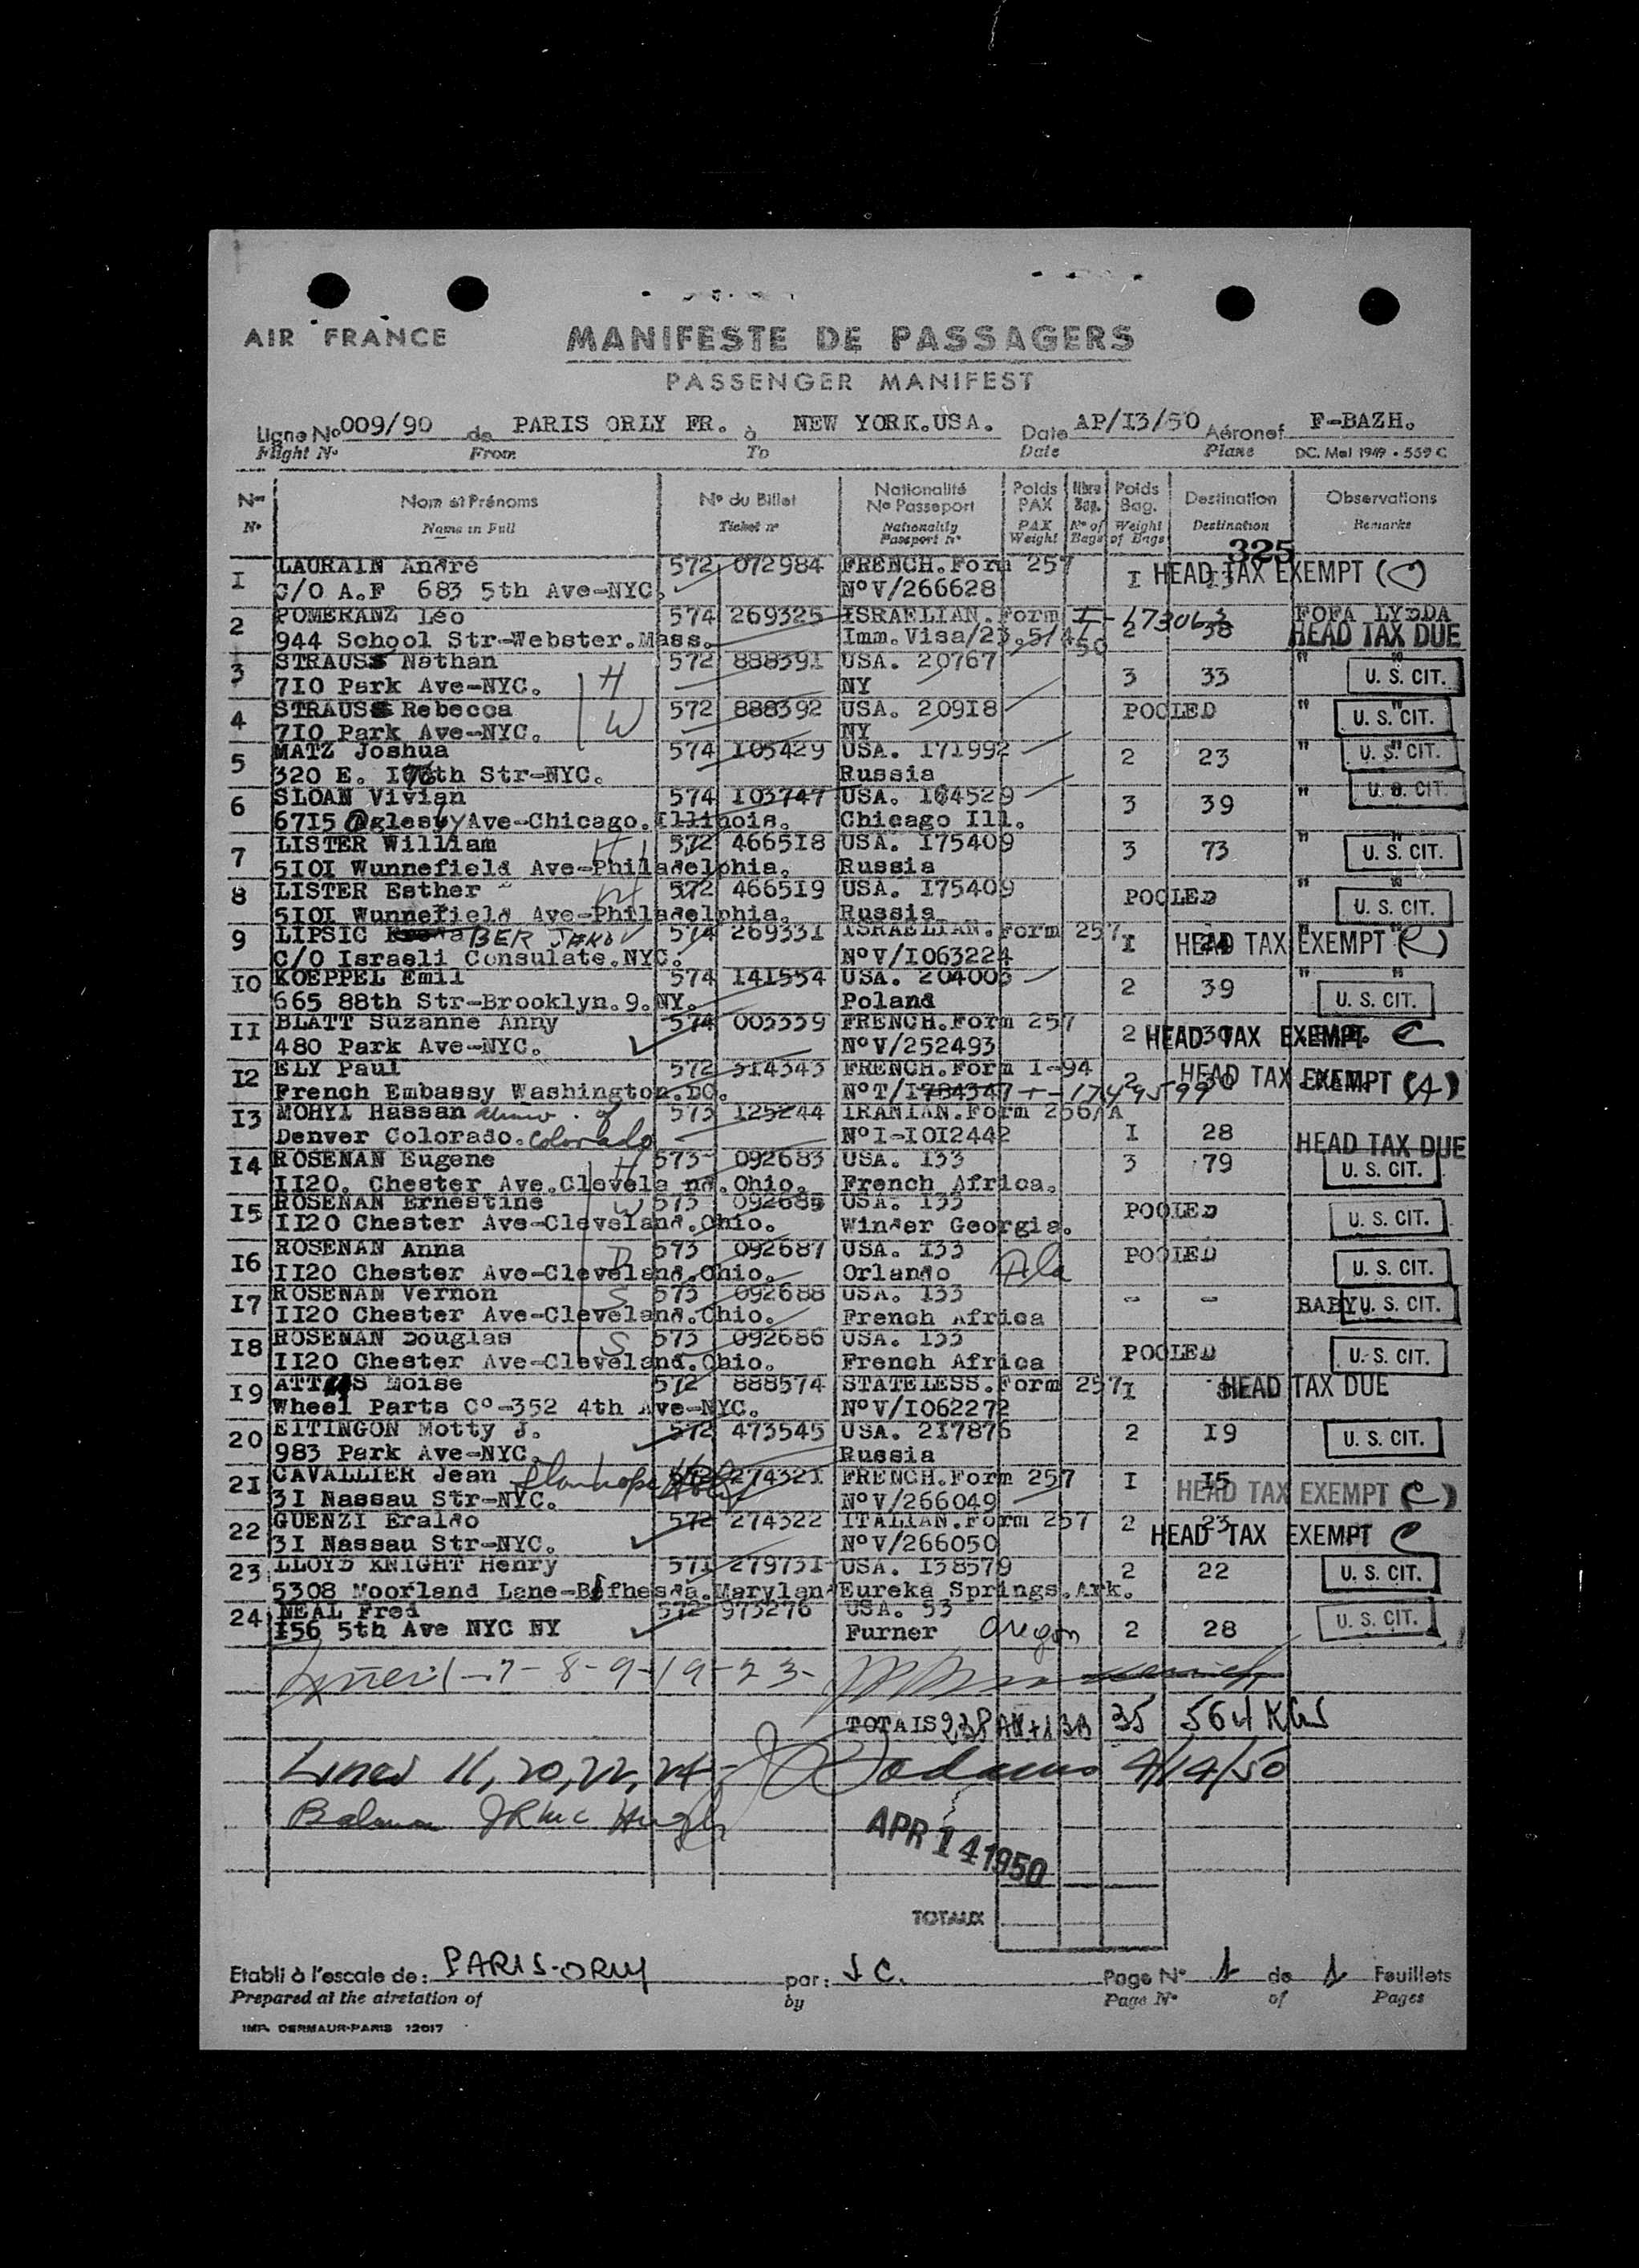 AIR FRANCE
MANIFESTE DE PASSAGERS
PASSENGER MANIFEST
Ligne No 009/90 de PARIS ORLY FR. à NEW YORK.USA. Date AP/I3/50 Aéronef F-BAZH.
Flight No From To Date Plane DC. Mai 1949 - 559 C
Nos Nom et Prénoms No du Billet Nationalité No Passeport Poids PAX Nbre Bag. Poids Bag. Destination Observations
No Name in Full Ticket no Nationality Passport No PAX Weight No of Bags Weight of Bags Destination Remarks
325
I LAURAIN André 572 072984 FRENCH.Form 257 I I3 HEAD TAX EXEMPT (C)
C/O A.F 683 5th Ave-NYC. N°V/266628
2 POMERANZ Léo 574 269325 ISRAELIAN.Form I-173063 2 38 FOFA LYDDA
944 School Str-Webster.Mass. Imm.Visa/23 HEAD TAX DUE
3 STRAUSS Nathan H 572 888391 USA. 20767 3 33 " " U. S. CIT.
7I0 Park Ave-NYC. NY
4 STRAUSS Rebecca W 572 888392 USA. 20918 POOLED " " U. S. CIT.
7I0 Park Ave-NYC. NY
5 MATZ Joshua 574 I05429 USA. I71992 2 23 " " U. S. CIT.
320 E. I76th Str-NYC. Russia
6 SLOAN Vivian 574 I03747 USA. I64529 3 39 " U. S. CIT.
6715 Oglesby Ave-Chicago.Illinois. Chicago Ill.
7 LISTER William H 572 466518 USA. I75409 3 73 " " U. S. CIT.
5I0I Wunnefield Ave-Philadelphia. Russia
8 LISTER Esther W 572 466519 USA. I75409 POOLED " " U. S. CIT.
5I0I Wunnefield Ave-Philadelphia. Russia
9 LIPSIC BER JAKOV 574 269331 ISRAELIAN.Form 257 I 24 HEAD TAX EXEMPT (C)
C/O Israeli Consulate.NYC. N°V/I063224
I0 KOEPPEL Emil 574 I41554 USA. 204003 2 39 " " U. S. CIT.
665 88th Str-Brooklyn.9.NY. Poland
II BLATT Suzanne Anny 574 005359 FRENCH.Form 257 2 30 HEAD TAX EXEMPT C
480 Park Ave-NYC. N°V/252493
I2 ELY Paul 572 314343 FRENCH.Form I-94 2 HEAD TAX EXEMPT (A)
French Embassy Washington.DC. N°T/I784347 I-1749599
I3 MOHYI Hassan of 573 I25244 IRANIAN.Form 256/A I 28 HEAD TAX DUE
Denver Colorado. Colorado N°I-I0I2442
I4 ROSENAN Eugene H 573 092683 USA. I33 3 79 U. S. CIT.
II20. Chester Ave.Clevela nd.Ohio. French Africa.
I5 ROSENAN Ernestine W 573 092685 USA. I33 POOLED U. S. CIT.
II20 Chester Ave-Cleveland.Ohio. Winder Georgia.
I6 ROSENAN Anna D 573 092687 USA. I33 POOLED U. S. CIT.
II20 Chester Ave-Cleveland.Ohio. Orlando Fla
I7 ROSENAN Vernon S 573 092688 USA. I33 - - BABY U. S. CIT.
II20 Chester Ave-Cleveland.Ohio. French Africa
I8 ROSENAN Douglas S 573 092686 USA. I33 POOLED U. S. CIT.
II20 Chester Ave-Cleveland.Ohio. French Africa
I9 ATTAS Moise 572 888574 STATELESS.Form 257 I HEAD TAX DUE
Wheel Parts C°-352 4th Ave-NYC. N°V/I062272
20 EITINGON Motty J. 572 473545 USA. 217876 2 I9 U. S. CIT.
983 Park Ave-NYC. Russia
2I CAVALLIER Jean Stanhope Hotel 572 274321 FRENCH.Form 257 I I5 HEAD TAX EXEMPT (C)
3I Nassau Str-NYC. N°V/266049
22 GUENZI Eraldo 572 274322 ITALIAN.Form 257 2 23 HEAD TAX EXEMPT C
3I Nassau Str-NYC. N°V/266050
23 LLOYD KNIGHT Henry 571 279731 USA. I38579 2 22 U. S. CIT.
5308 Moorland Lane-Bethesda.Maryland Eureka Springs.Ark.
24 NEAL Fred 572 973276 USA. 53 2 28 U. S. CIT.
I56 5th Ave NYC NY Furner Oregon
-7-8-9-19-23-
TOTAIS 23 PAX + 1 BB 35 564 KGS
Lines 11, 20, 22, 24 - 4/14/50
Balance JR Mc Hugh
APR 14 1950
TOTAUX
Etabli à l'escale de: PARIS-ORLY par: J C. Page No 1 de 1 Feuillets
Prepared at the airstation of by Page No of Pages
IMP. DERMAUR-PARIS 12017